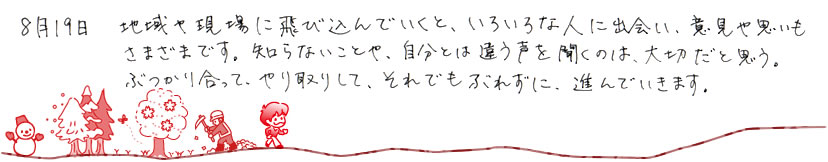 8月19日 地域や現場に飛び込んでいくと、いろいろな人に出会い、意見や思いも
さまざまです。知らないことや、自分とは違う声を聞くのは、大切だと思う。
ぶつかり合って、やり取りして、それでもぶれずに、進んでいきます。